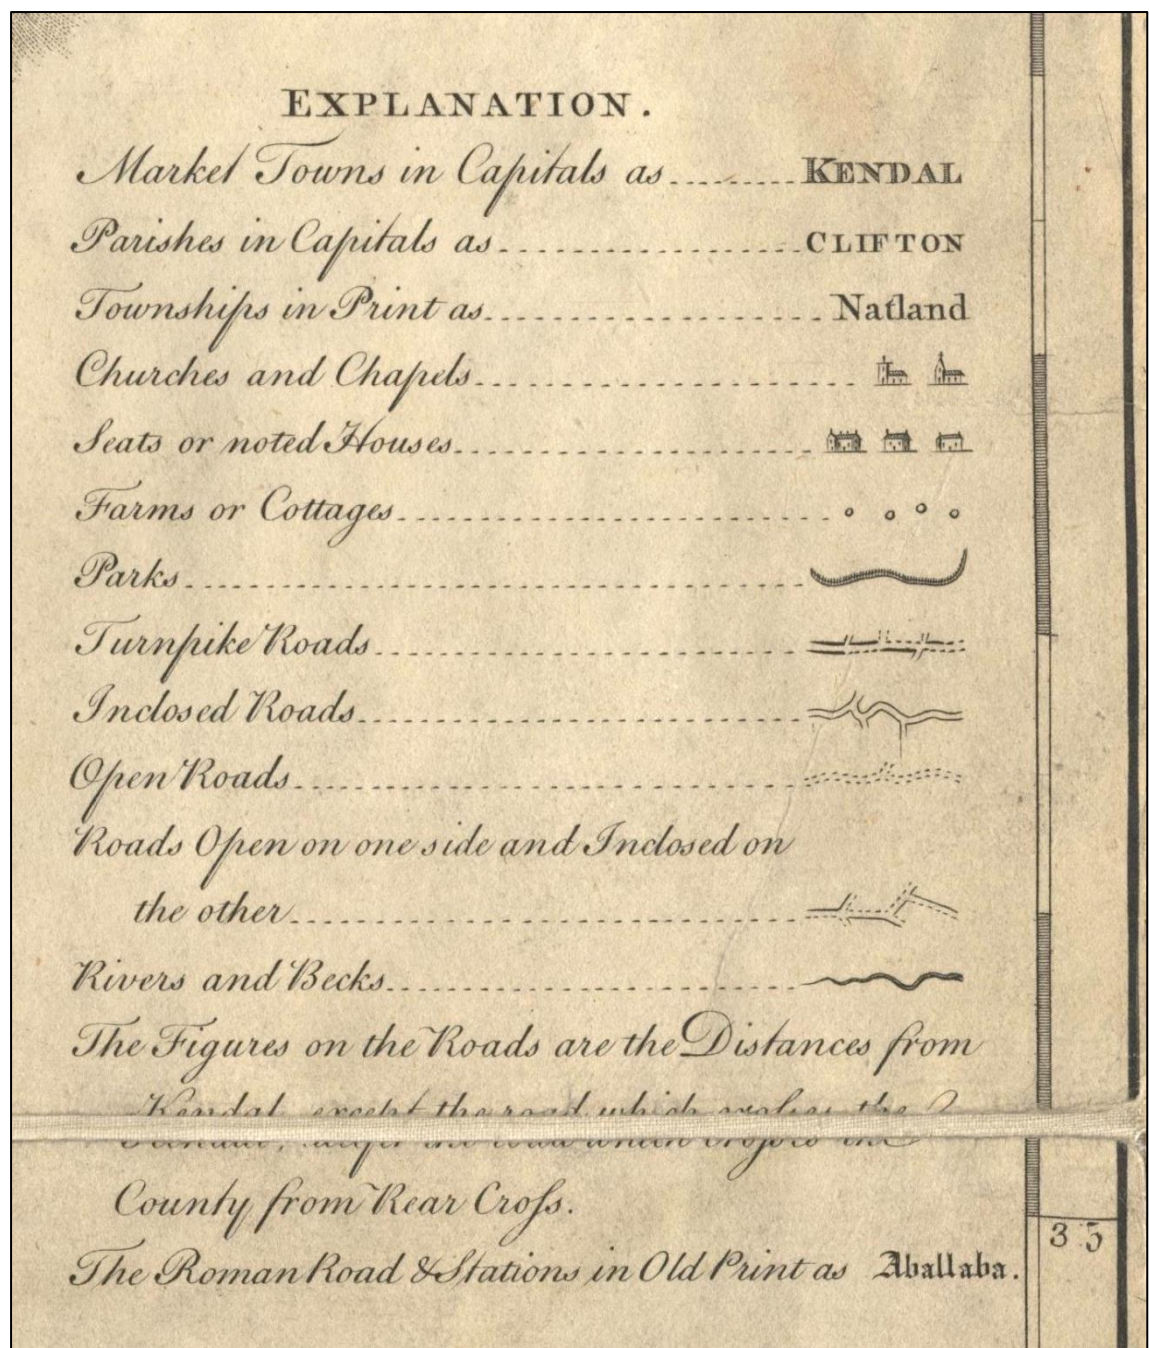 EXPLANATION.
Market Towns in Capitals as KENDAL
Parishes in Capitals as CLIFTON
Townships in Print as Natland
Churches and Chapels
Seats or noted Houses
Farms or Cottages
Parks
Turnpike Roads
Inclosed Roads
Open Roads
Roads Open on one side and Inclosed on
the other
Rivers and Becks
The Figures on the Roads are the Distances from
Kendal, except the road which croſses the
County from Rear Croſs.
35
The Roman Road & Stations in Old Print as Aballaba.